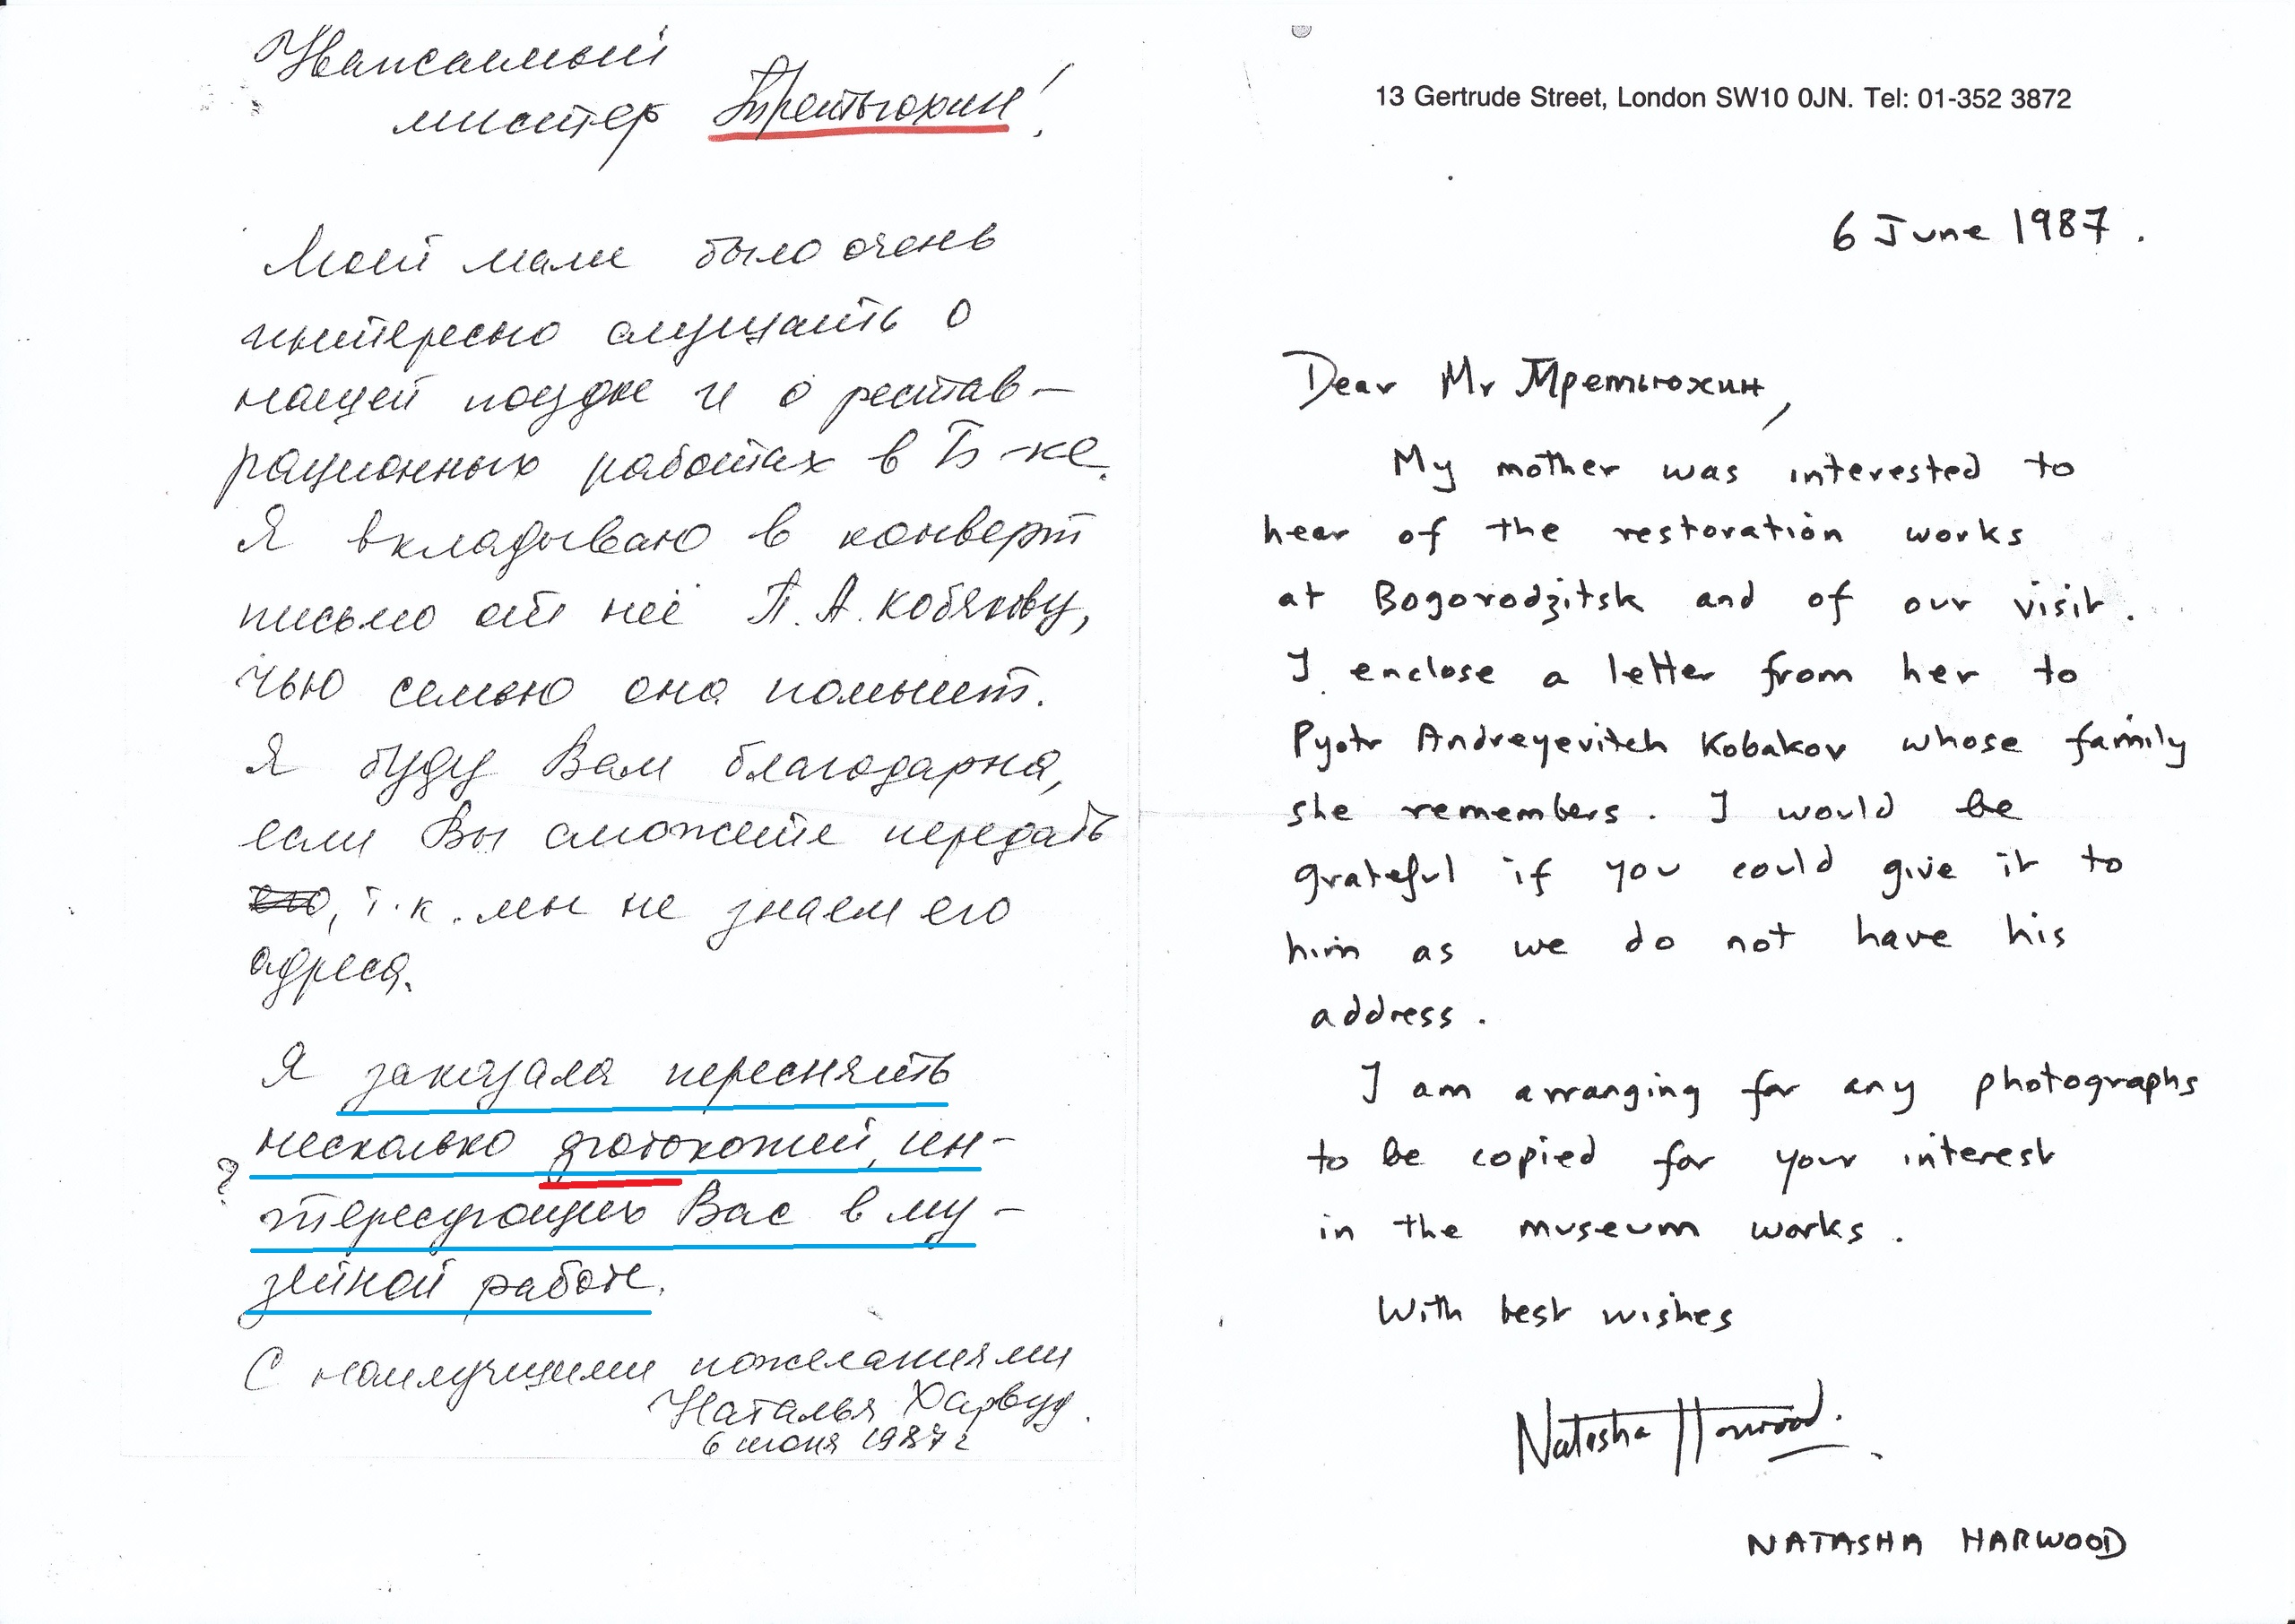 Уважаемый
мистер Третьюхин!
Моей маме было очень
интересно слушать о
нашей поездке и о рестав-
рационных работах в Б-ке.
Я вкладываю в конверт
письмо от неё П. А. Кобякову,
чью семью она помнит.
Я буду Вам благодарна,
если Вы сможете передать
его, т.к. мы не знаем его
адреса.
Я заказала переснять
несколько фотокопий, ин-
?
тересующих Вас в му-
зейной работе.
С наилучшими пожеланиями
Наталья Харвуд.
6 июня 1987 г
13 Gertrude Street, London SW10 0JN. Tel: 01-352 3872
6 June 1987.
Dear Mr Третьюхин,
My mother was interested to
hear of the restoration works
at Bogorodzitsk and of our visit.
I enclose a letter from her to
Pyotr Andreyevitch Kobakov whose family
she remembers. I would be
grateful if you could give it to
him as we do not have his
address.
I am arranging for any photographs
to be copied for your interest
in the museum works.
With best wishes
Natasha Harwood.
NATASHA HARWOOD